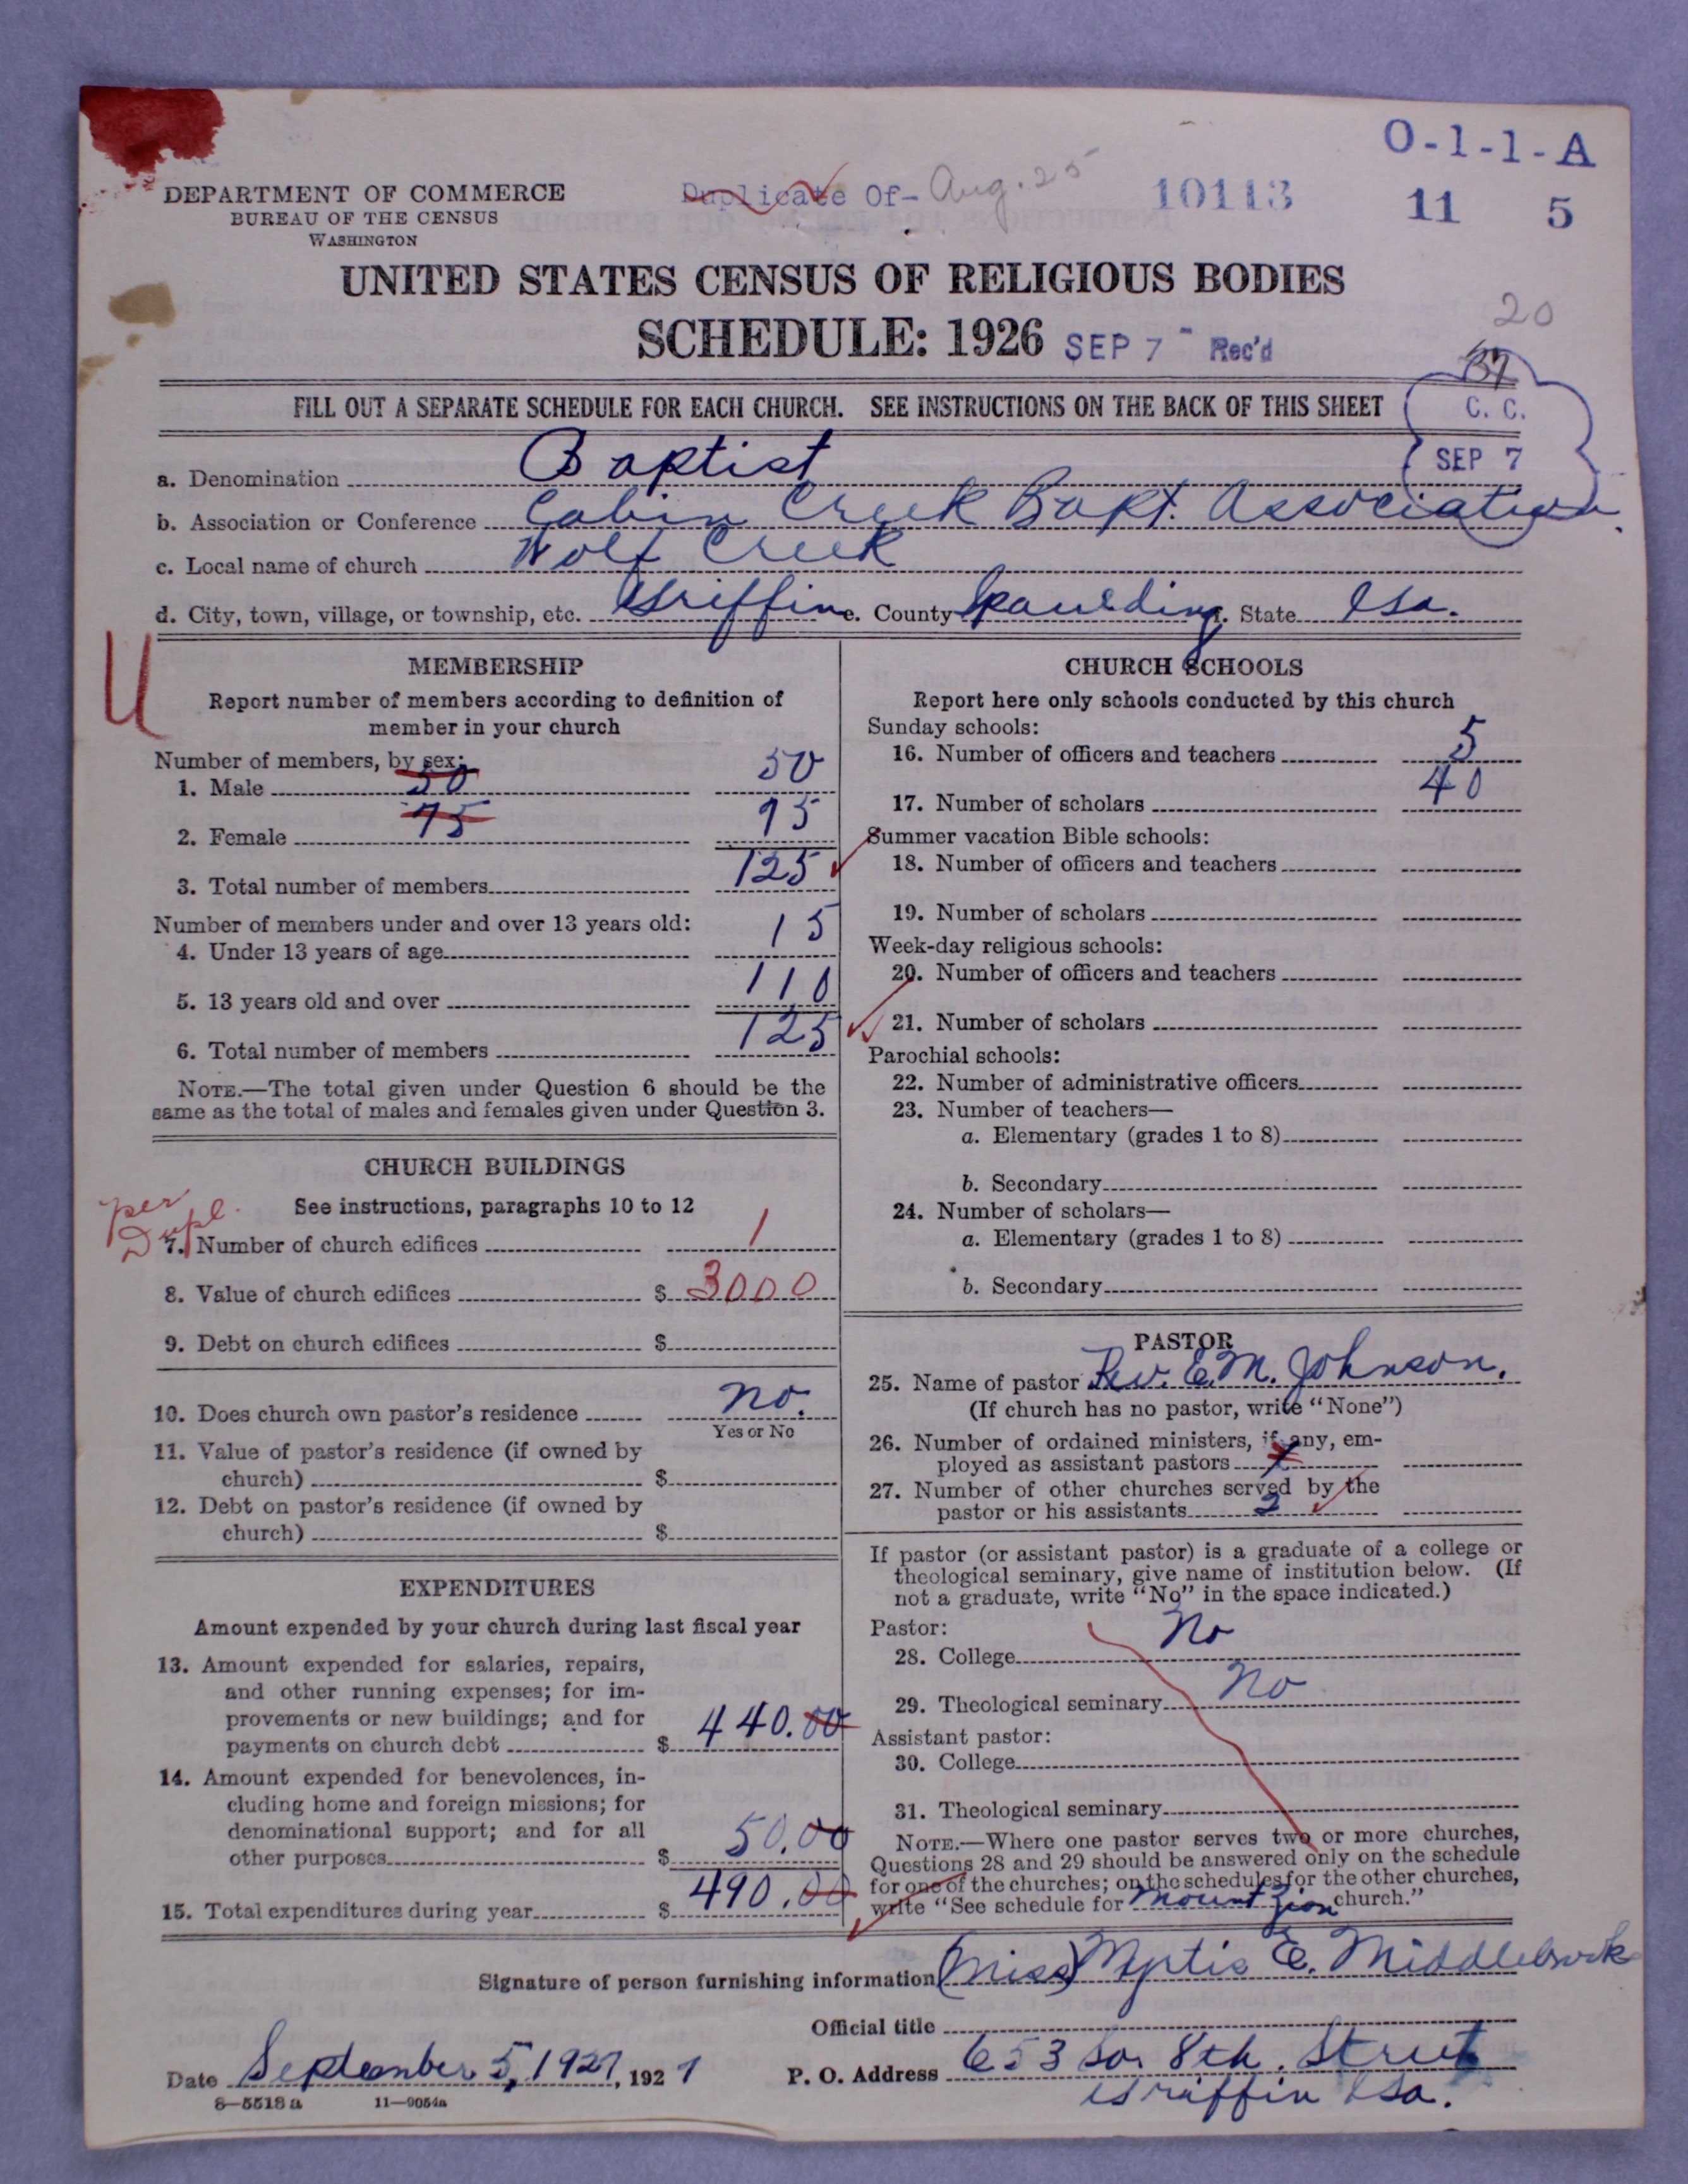 O-1-1-A
DEPARTMENT OF COMMERCE
BUREAU OF THE CENSUS
WASHINGTON
Duplicate Of- Aug. 25
10113
11 5
UNITED STATES CENSUS OF RELIGIOUS BODIES
SCHEDULE: 1926
SEP 7 Rec'd
20
37
C. C.
SEP 7
FILL OUT A SEPARATE SCHEDULE FOR EACH CHURCH. SEE INSTRUCTIONS ON THE BACK OF THIS SHEET
a. Denomination Baptist
b. Association or Conference Cabin Creek Bapt. Association
c. Local name of church Wolf Creek
d. City, town, village, or township, etc. Griffin e. County Spaulding f. State Ga.
U
MEMBERSHIP
Report number of members according to definition of
member in your church
Number of members, by sex:
1. Male 50 50
2. Female 75 75
3. Total number of members 125
Number of members under and over 13 years old:
4. Under 13 years of age 15
5. 13 years old and over 110
6. Total number of members 125
NOTE.—The total given under Question 6 should be the
same as the total of males and females given under Question 3.
CHURCH BUILDINGS
See instructions, paragraphs 10 to 12
per
Dupl.
7. Number of church edifices 1
8. Value of church edifices $ 3000
9. Debt on church edifices $
10. Does church own pastor's residence no.
Yes or No
11. Value of pastor's residence (if owned by
church) $
12. Debt on pastor's residence (if owned by
church) $
EXPENDITURES
Amount expended by your church during last fiscal year
13. Amount expended for salaries, repairs,
and other running expenses; for im-
provements or new buildings; and for
payments on church debt $ 440.00
14. Amount expended for benevolences, in-
cluding home and foreign missions; for
denominational support; and for all
other purposes $ 50.00
15. Total expenditures during year $ 490.00
CHURCH SCHOOLS
Report here only schools conducted by this church
Sunday schools:
16. Number of officers and teachers 5
17. Number of scholars 40
Summer vacation Bible schools:
18. Number of officers and teachers
19. Number of scholars
Week-day religious schools:
20. Number of officers and teachers
21. Number of scholars
Parochial schools:
22. Number of administrative officers
23. Number of teachers—
a. Elementary (grades 1 to 8)
b. Secondary
24. Number of scholars—
a. Elementary (grades 1 to 8)
b. Secondary
PASTOR
25. Name of pastor Rev. E. M. Johnson.
(If church has no pastor, write "None")
26. Number of ordained ministers, if any, em-
ployed as assistant pastors
27. Number of other churches served by the
pastor or his assistants 2
If pastor (or assistant pastor) is a graduate of a college or
theological seminary, give name of institution below. (If
not a graduate, write "No" in the space indicated.)
Pastor:
28. College No
29. Theological seminary No
Assistant pastor:
30. College
31. Theological seminary
NOTE.—Where one pastor serves two or more churches,
Questions 28 and 29 should be answered only on the schedule
for one of the churches; on the schedules for the other churches,
write "See schedule for Mount Zion church."
Signature of person furnishing information (Miss) Myrtis E. Middlebrook
Official title
Date September 5, 1927, 1927
P. O. Address 653 So. 8th. Street
Griffin Ga.
8—5518 a 11—9054a